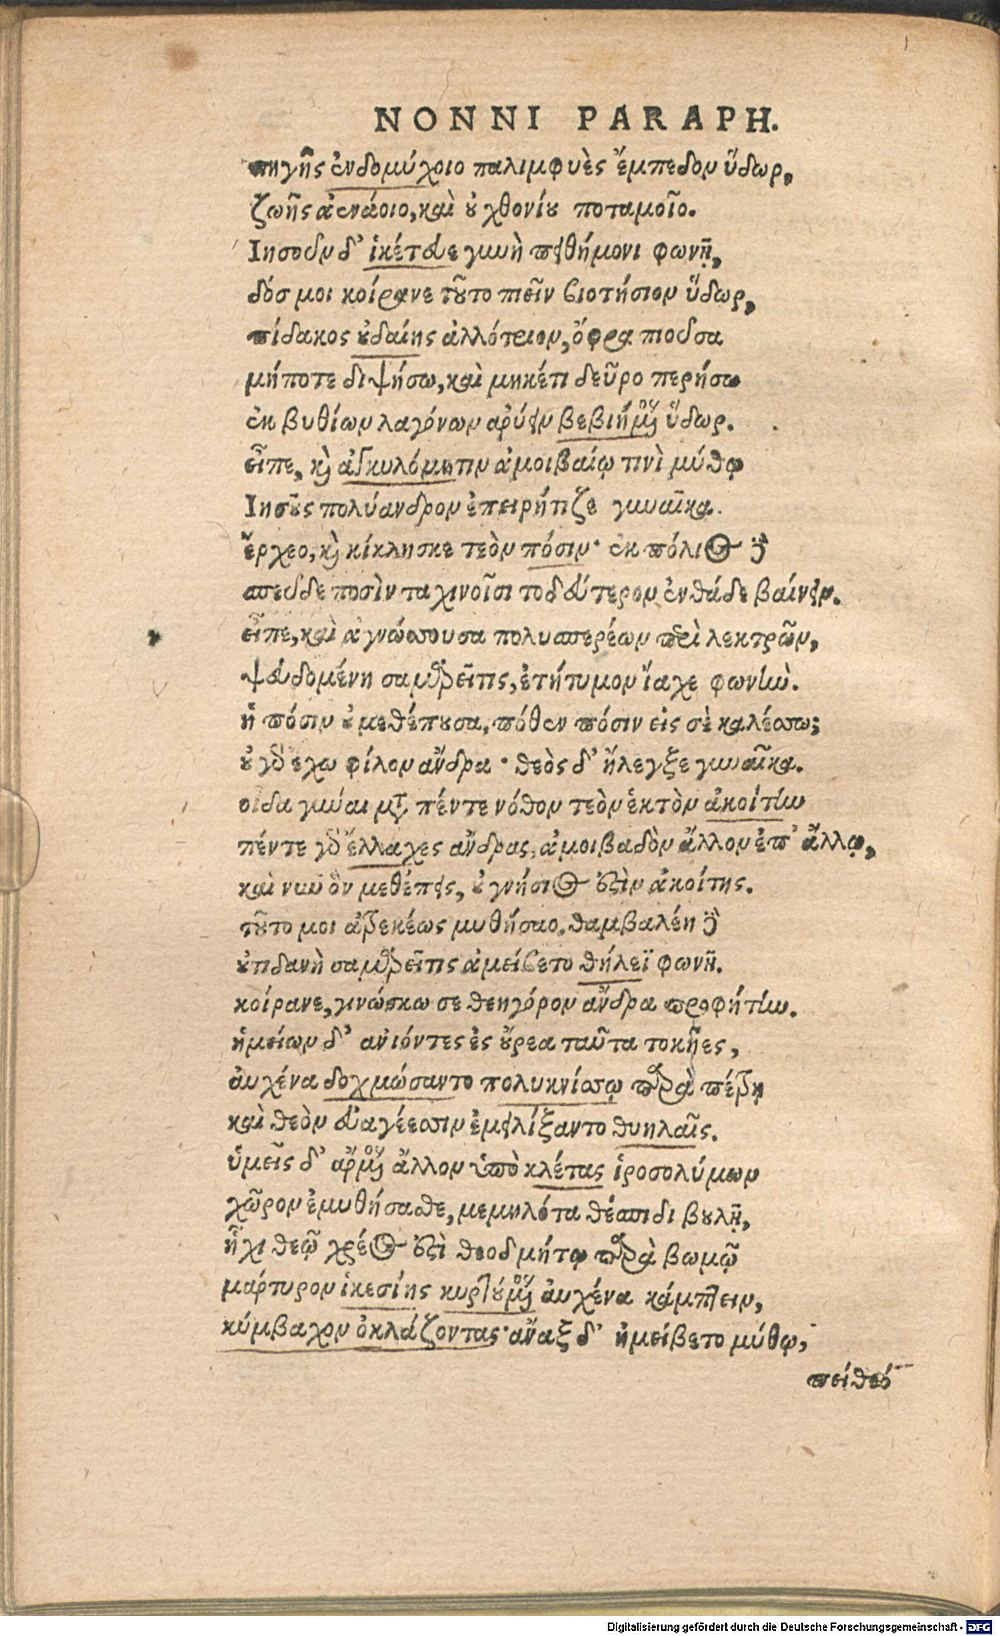 NONNI PARAPH.
πηγῆς ἐνδομύχοιο παλιμφυὲς ἔμπεδον ὕδωρ,
ζωῆς ἀενάοιο, καὶ οὐ χθονίου ποταμοῖο.
Ἰησοῦν δ' ἱκέτευε γυνὴ πειθήμονι φωνῇ,
δός μοι κοίρανε τοῦτο πιεῖν βιοτήσιον ὕδωρ,
πίδακος οὐδαίης ἀλλότριον, ὄφρα πιοῦσα
μήποτε διψήσω, καὶ μηκέτι δεῦρο περήσω
ἐκ βυθίων λαγόνων ἀρύειν βεβιημένον ὕδωρ.
εἶπε, καὶ ἀγκυλόμητιν ἀμοιβαίῳ τινὶ μύθῳ
Ἰησοῦς πολύανδρον ἐπειρήτιζε γυναῖκα.
ἔρχεο, καὶ κίκλησκε τεὸν πόσιν· ἐκ πόλιος δὲ
σπεῦδε ποσὶν ταχινοῖσι τοδεύτερον ἐνθάδε βαίνειν.
εἶπε, καὶ ἀγνώσσουσα πολυσπερέων περὶ λεκτρῶν,
ψευδομένη σαμαρεῖτις, ἐτήτυμον ἴαχε φωνὴν.
ἡ πόσιν οὐ μεθέπουσα, πόθεν πόσιν εἰς σὲ καλέσσω;
οὐ γὰρ ἔχω φίλον ἄνδρα· θεὸς δ' ἤλεγξε γυναῖκα.
οἶδα γύναι μετὰ πέντε νόθον τεὸν ἑκτὸν ἀκοίτην
πέντε γὰρ ἔλλαχες ἄνδρας, ἀμοιβαδὸν ἄλλον ἐπ' ἄλλῳ,
καὶ νῦν ὃν μεθέπεις, οὐ γνήσιος ἐστὶν ἀκοίτης.
τοῦτο μοι ἀτρεκέως μυθήσαο. θαμβαλέη δὲ
οὐτιδανὴ σαμαρεῖτις ἀμείβετο θήλεϊ φωνῇ.
κοίρανε, γινώσκω σε θεηγόρον ἄνδρα προφήτην.
ἡμείων δ' ανιόντες ἐς οὔρεα ταῦτα τοκῆες,
ἀυχένα δοχμώσαντο πολυκνίσσῳ παρὰ πέτρῃ
καὶ θεὸν εὐαγέεσσιν ἐμειλίξαντο θυηλαῖς.
ὑμεῖς δ' ἄρμενον ἄλλον ὑπὸ κλέτας ἱροσολύμων
χῶρον ἐμυθήσασθε, μεμηλότα θέσπιδι βουλῇ,
ἧχι θεῷ χρέος ἐστὶ θεοδμήτῳ παρὰ βωμῷ
μάρτυρον ἱκεσίης κυρτούμενον ἀυχένα κάμπτειν,
κύμβαχον ὀκλάζοντας· ἄναξ δ' ἠμείβετο μύθῳ,
πείθεό